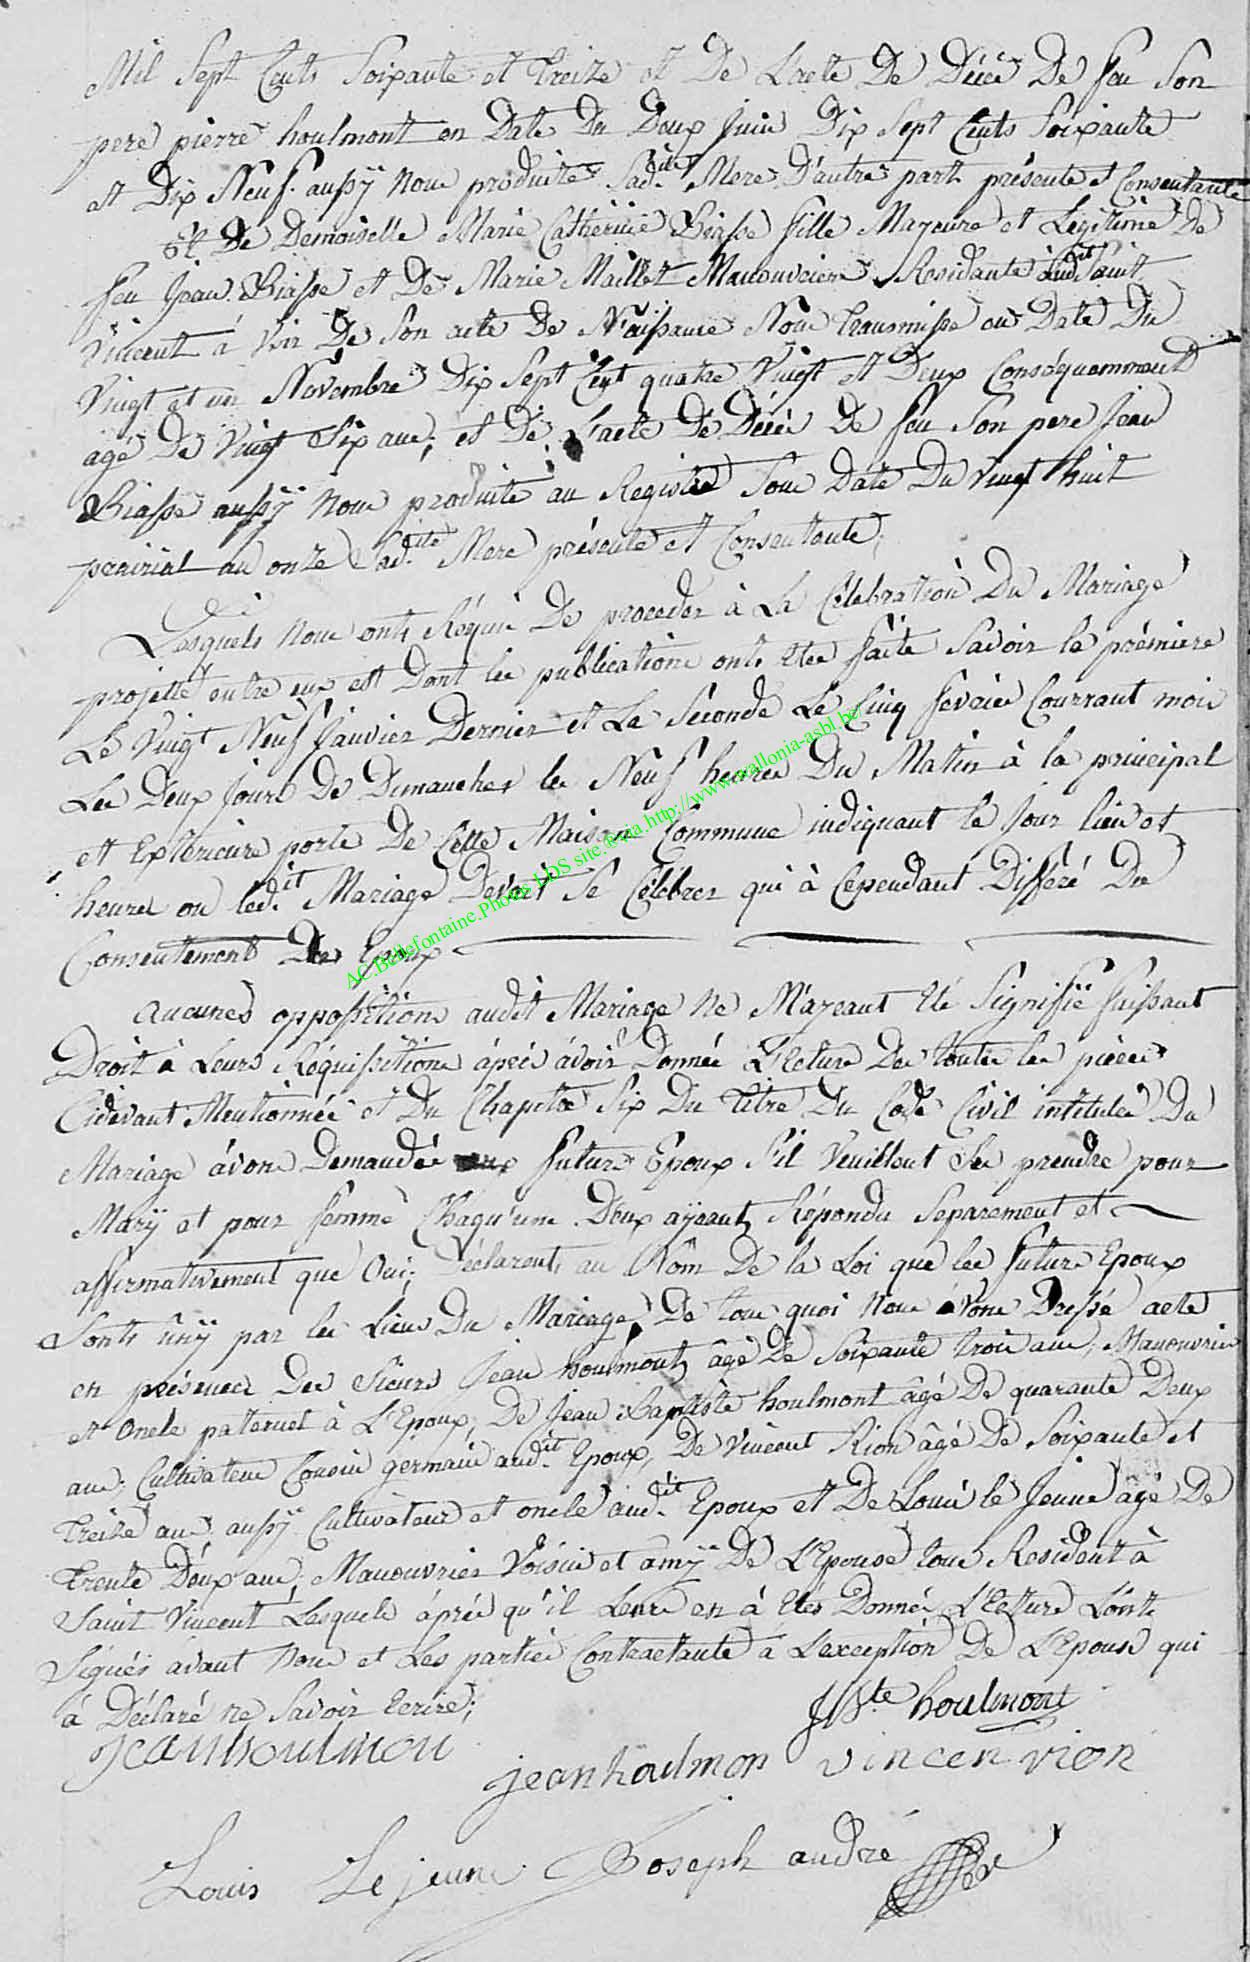 Mil Sept Cents Soixante et Treize et De Lacte De Décés De feu Son
pere pierre houlmont en Date Du Deux Juin Dix Sept Cents Soixante
et Dix Neuf aussÿ Nous produite Sad.ite Mere D'autre part présente et Consentante
Et De Demoiselle Marie Catherine Biasse fille Majeure et Legitime De
feu Jean Biasse et De Marie Maillet Manouvriere Residante aud.it Saint
Vincent à Voir De Son acte De Naissance Nous transmisse en Date Du
Vingt et un Novembre Dix Sept Cent quatre Vingt et Deux Conséquemment
agé De Vingt Six ans; et De L'acte De Décés De feu Son pere Jean
Biasse aussÿ Nous produite au Registre Sous Date Du Vingt huit
prairial an onze Sad.ite Mere présente et Consentante;
Lesquels Nous onts Réquis De proceder à La Célebration Du Mariage
projetté entre eux est Dont les publications onts etée faite Savoir la prémiere
Le Vingt Neuf Janvier Dernier et Le Séconde Le Cinq fevrier Courrant mois
Les Deux Jours De Dimanches les Neuf heures Du Matin à la principal
et Exterieure porte De Cette Maison Commune indiquant le Jour lieu et
heures ou led.it Mariage Devoit Se Célébrer qui à Cependant Differé Du
Consentement Des Epoux
Aucunes oppositions audit Mariage Ne M'ayeant Eté Signifié faissant
Droit à Leurs Réquissitions áprés ávoir Donnée L'Ecture De toutes les pièces
Cidevant Mentionnées et Du Chapitre Six Du titre Du Code Civil intitulés Du
Mariage ávons Demandés aux futurs Epoux S'il Veuillent Se prendre pour
Marÿ et pour femme Chaqu'un D'eux ayeant Répondu Separement et
affirmativement que Oui; Déclarons au Nom De la Loi que les futurs Epoux
Sonts ûnÿ par les Liens Du Mariage, De tous quoi Nous avons Dressé acte
en présence Des Sieurs Jean houlmont âgé De Soixante trois ans, Manouvrier
et Oncle paternel à L'Epoux, De Jean Baptiste houlmont âgé De quarante Deux
ans, Cultivateur Cousin germain aud.it Epoux, De Vincent Rion âgé De Soixante et
Treize ans aussÿ Cultivateur et oncle aud.it Epoux et De Louis le Jeune âgé De
trente Deux ans, Manouvrier Voisin et amÿ De L'Epouse tous Resident à
Saint Vincent Lesquels áprés qu'il Leurs en à Etés Donnée L'Ecture L'onts
Signés avant Nous et Les parties Contractante à L'exception De L'Epouse qui
à Déclaré ne Savoir Ecrire;
JBte houlmont
jean houlmon
jean houlmon vincen rion
Louis Le jeune Joseph andré
AC.Bellefontaine.Photos LDS site.®via.http://www.wallonia-asbl.be/